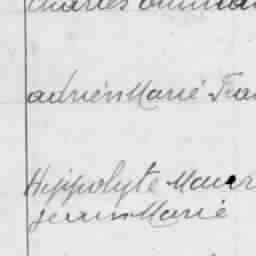 Charles
adrien Marie Fran
Hippolyte Maur
jean Marie